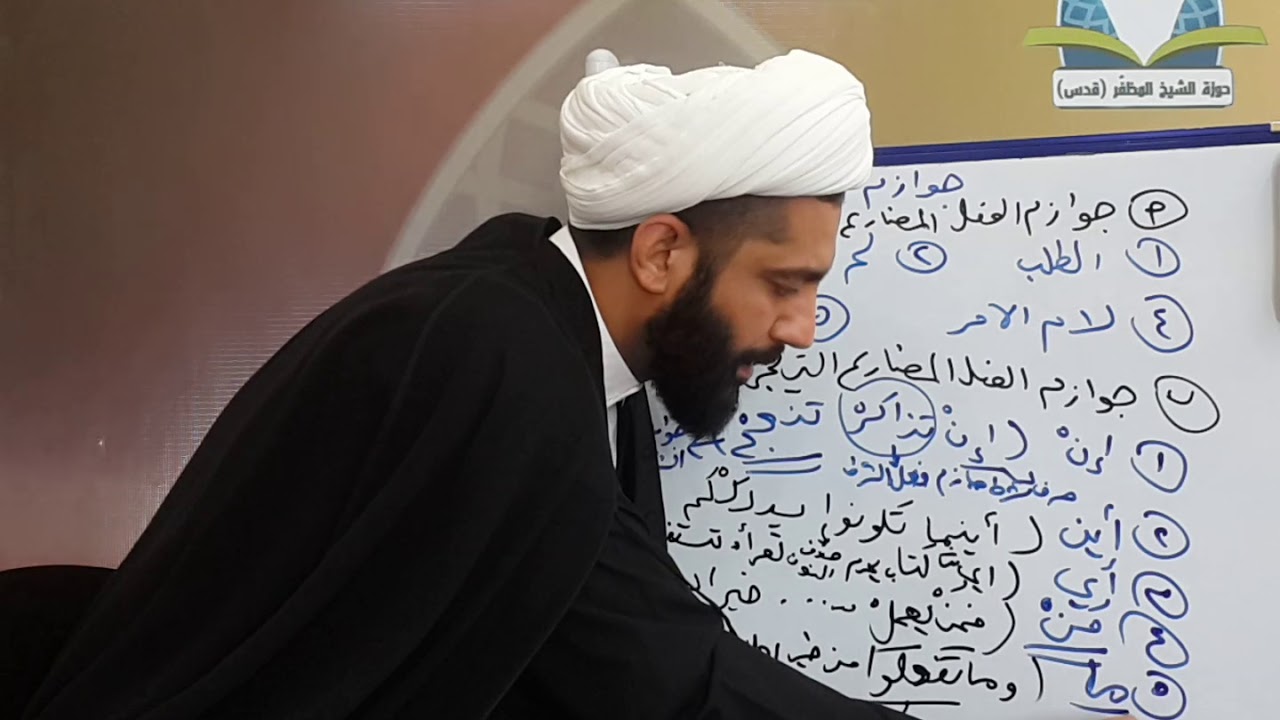 حوزة الشيخ المظفر (قدس)
جوازم
٣ جوازم الفعل المضارع
١ الطلب ٢ لم
٤ لام الامر ٥
ب جوازم الفعل المضارع التي
١ إنْ (إنْ تذاكرْ تنجحْ
حرف شرط جازم فعل الشرط
٢ أين (أينما تكونوا يدرككم
٣ أي (أي كتاب تقرأ تستفد
حذف النون
٤ مَنْ (فمنْ يعملْ ... خيرا
٥ ما (وما تفعلوا من خير